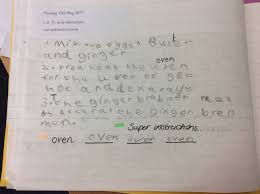 Monday 15th May 2017
L.O. To write instructions
1. Mix the eggs Buter
and ginger
oven
2. Preaheat the uven
for the uven to get
hot and
3. The ginger brebmen
decarate the ginger bren
men.
Super instructions.
oven oven oven oven